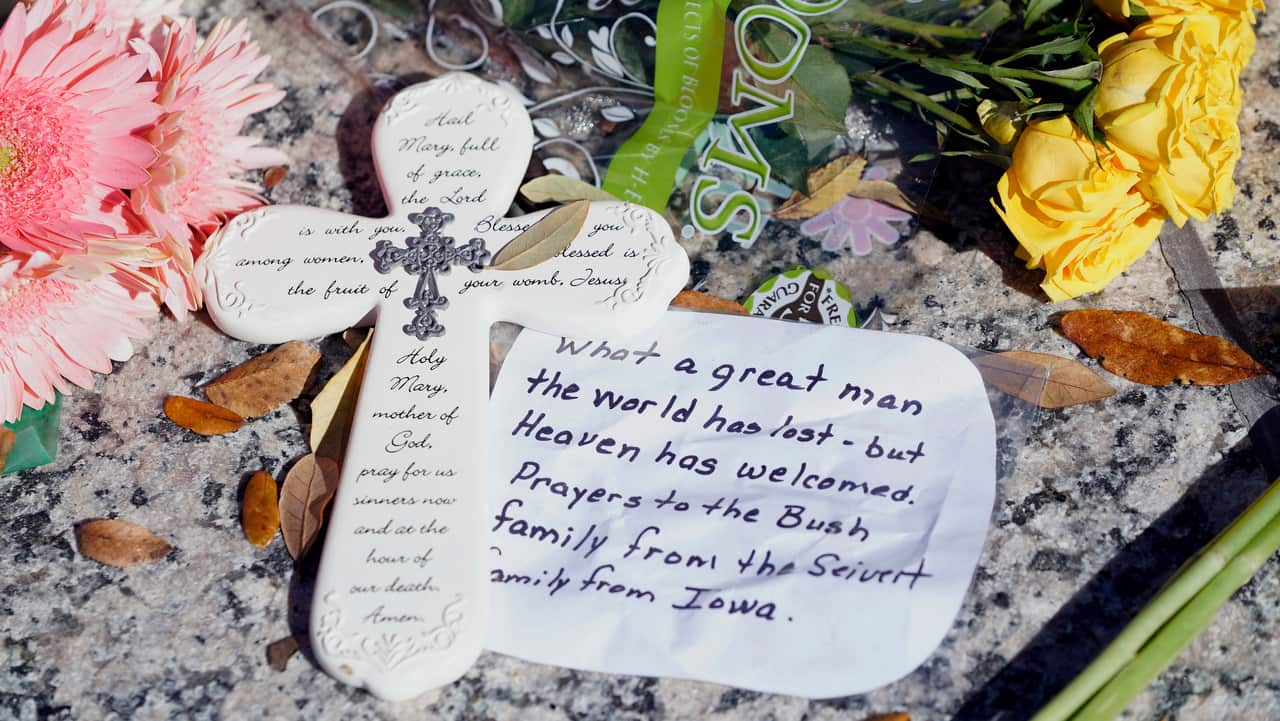 Hail
Mary, full
of grace,
the Lord
is with you. Blesse you
among women, blessed is
the fruit of your womb, Jesus.
Holy
Mary,
mother of
God,
pray for us
sinners now
and at the
hour of
our death.
Amen.
What a great man
the world has lost - but
Heaven has welcomed.
Prayers to the Bush
family from the Seivert
family from Iowa.
OMS
ECTS OF BLOOMS BY H-E
*FRE
FOR
GUARA